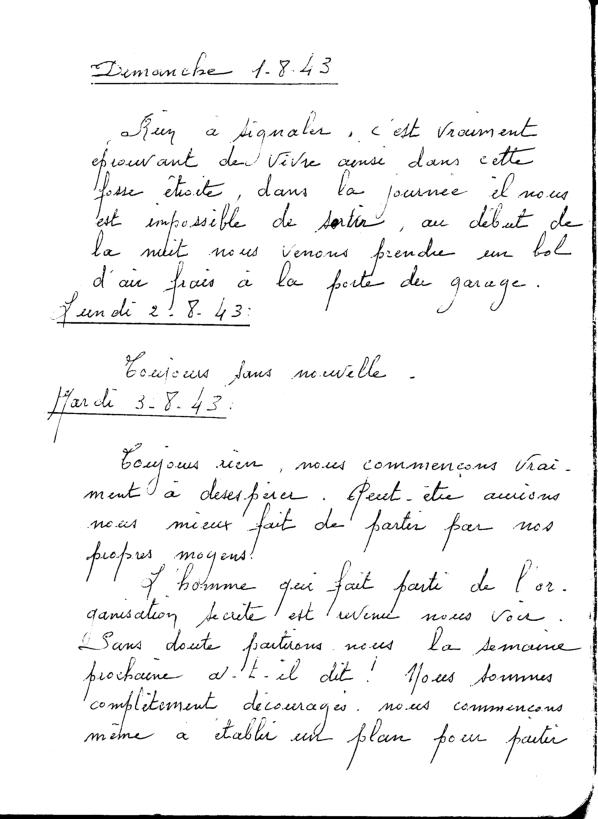 Dimanche 1-8-43
Rien à signaler, c'est vraiment
éprouvant de vivre ainsi dans cette
fosse étroite, dans la journée il nous
est impossible de sortir, au début de
la nuit nous venons prendre un bol
d'air frais à la porte du garage.
Lundi 2-8-43:
Toujours sans nouvelle.
Mardi 3-8-43:
Toujours rien, nous commençons vrai-
ment à desespérer. Peut-être aurions
nous mieux fait de partir par nos
propres moyens!
L'homme qui fait parti de l'or-
ganisation secrète est revenu nous voir.
Sans doute partirons nous la semaine
prochaine a-t-il dit! Nous sommes
complètement découragés. nous commencons
même à établir un plan pour partir